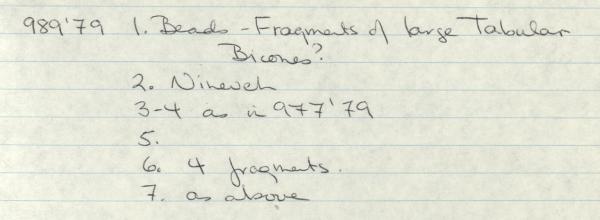 989'79 1. Beads - Fragments of large Tabular
Bicones?
2. Nineveh
3-4 as in 977'79
5.
6. 4 fragments.
7. as above